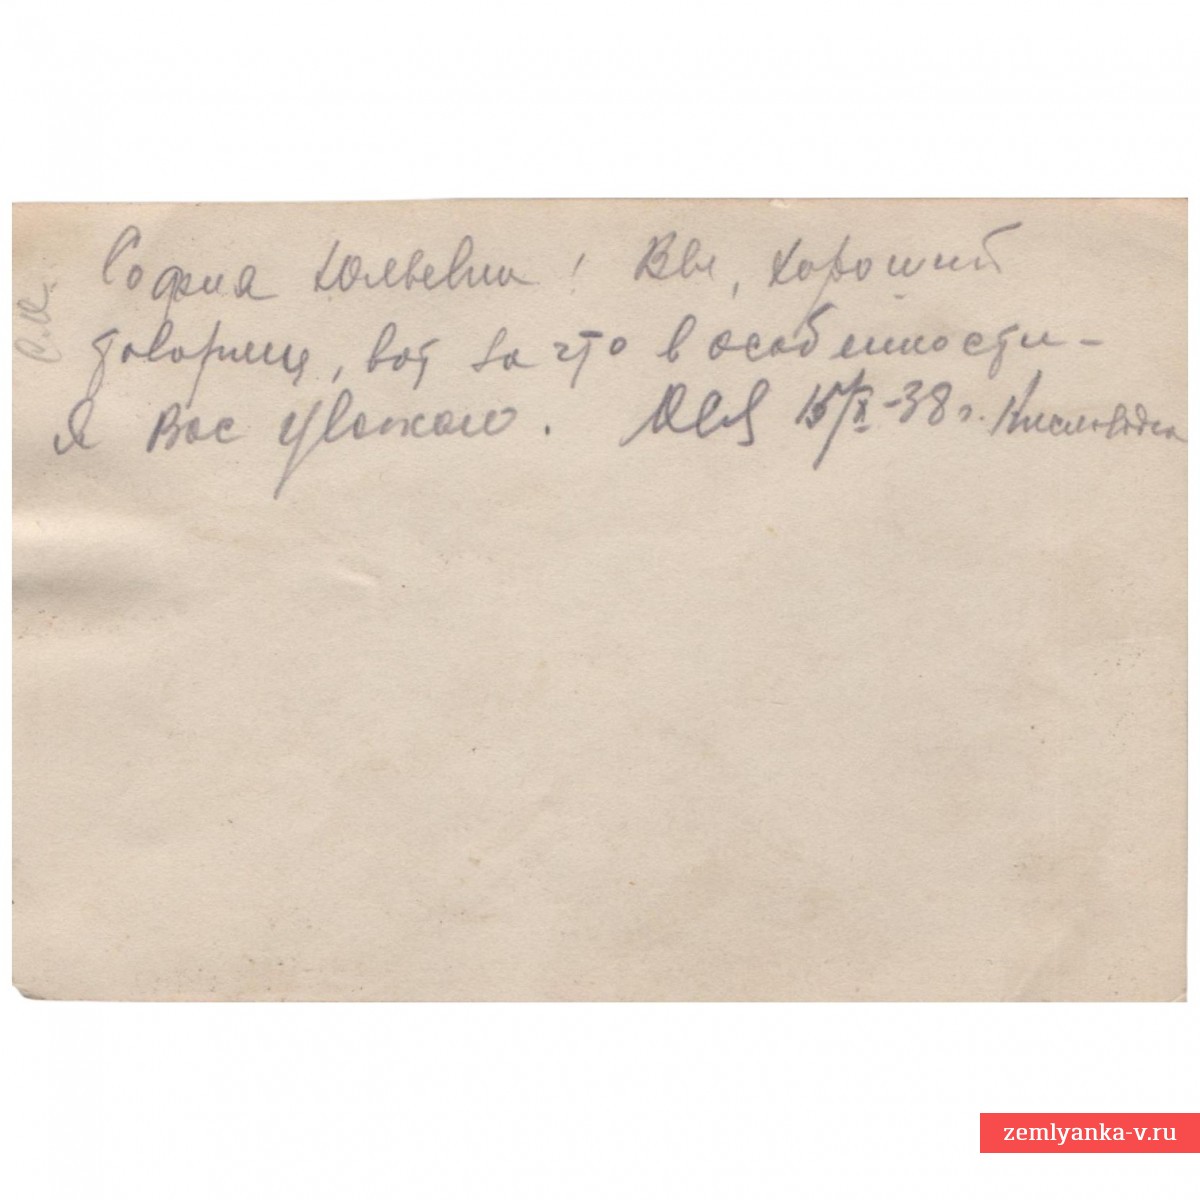 София Юльевна! Вы, хороший
товарищ, вот за что в особенности–
Я Вас уважаю. 15/X–38 г. Кисловодск
zemlyanka-v.ru